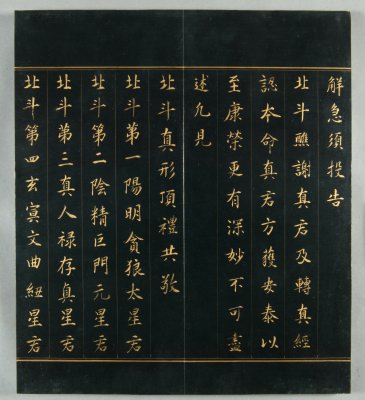 解急須投告
北斗醮謝真君及轉真經
認本命真君方獲安泰以
至康榮更有深妙不可盡
述凡見
北斗真形頂禮共敬
北斗第一陽明貪狼太星君
北斗第二陰精巨門元星君
北斗第三真人祿存真星君
北斗第四玄冥文曲紐星君